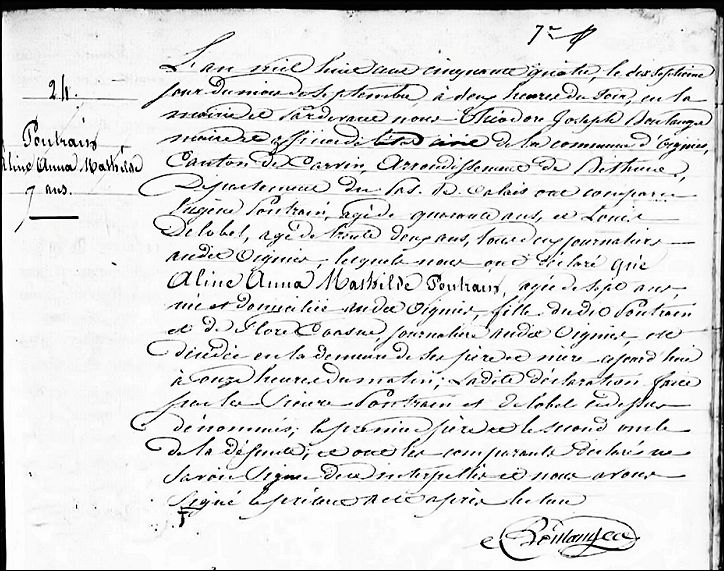 7re
24.
Poutrain
Aline Anna Mathilde
7 ans.
L'an mil huit cent cinquante quatre, le dix septième
jour du mois de Septembre à deux heures du Soir, en la
mairie et pardevant nous Théodore Joseph Boulanger
maire et officier de l'état civil de la commune d'Oignies,
Canton de Carvin, Arrondissement de Béthune,
Département du Pas-de-Calais ont comparu
Eugène Poutrain, agé de quarante ans, et Louis
Delobel, agé de trente deux ans, tous deux journaliers
audit Oignies, lesquels nous ont déclaré que
Aline Anna Mathilde Poutrain, agée de sept ans,
née et domiciliée audit Oignies, fille dudit Poutrain
et de Flore journalière audit Oignies, est
décédée en la demeure de ses père et mère aujourd'hui
à onze heures du matin; Ladite déclaration faite
par les Sieurs Poutrain et Delobel ci-dessus
dénommés; le premier père et le second oncle
de la défunte; et ont les comparants déclaré ne
Savoir Signer de ce interpellés et nous avons
Signé le présent acte après lecture
Boulanger